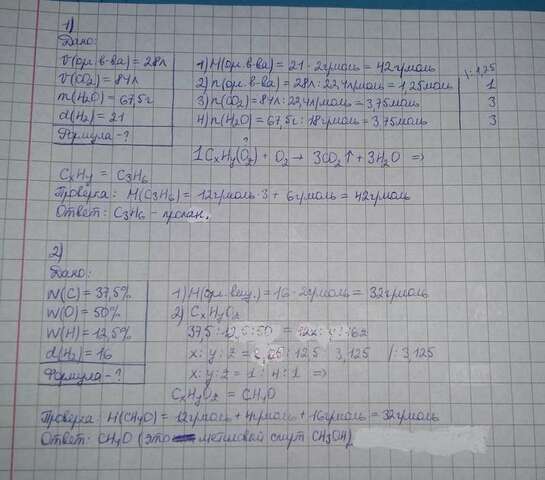 1)
Дано:
V(орг. в-ва) = 28л
V(CO₂) = 84л
m(H₂O) = 67,5г
d(H₂) = 21
Формула - ?
1) M(орг. в-ва) = 21 · 2г/моль = 42г/моль
2) n(орг. в-ва) = 28л : 22,4л/моль = 1,25моль
3) n(CO₂) = 84л : 22,4л/моль = 3,75моль
4) n(H₂O) = 67,5г : 18г/моль = 3,75моль
/: 1,25
1
3
3
?
1CₓHᵧ(O₂) + O₂ → 3CO₂↑ + 3H₂O ⇒
CₓHᵧ = C₃H₆
Проверка: M(C₃H₆) = 12г/моль · 3 + 6г/моль = 42г/моль
Ответ: C₃H₆ -
2)
Дано:
W(C) = 37,5%
W(O) = 50%
W(H) = 12,5%
d(H₂) = 16
Формула - ?
1) M(орг. вещ.) = 16 · 2г/моль = 32г/моль
2) CₓHᵧO_z
37,5 : 12,5 : 50 = 12x : y : 16z
x : y : z = : 12,5 3,125 /: 3,125
x : y : z = 1 : 4 : 1 ⇒
CₓHᵧO_z = CH₄O
Проверка: M(CH₄O) = 12г/моль + 4г/моль + 16г/моль = 32г/моль
Ответ: CH₄O (это метиловый спирт CH₃OH)